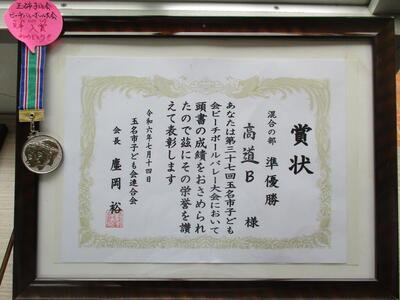 賞状
混合の部 準優勝
高道B 様
あなたは第三十七回玉名市子ども
会ビーチボールバレー大会において
頭書の成績をおさめられ
たので玆にその栄誉を讃
えて表彰します
令和六年七月十四日
玉名市子ども会連合会
会長 廣岡 裕
玉名市子ども会